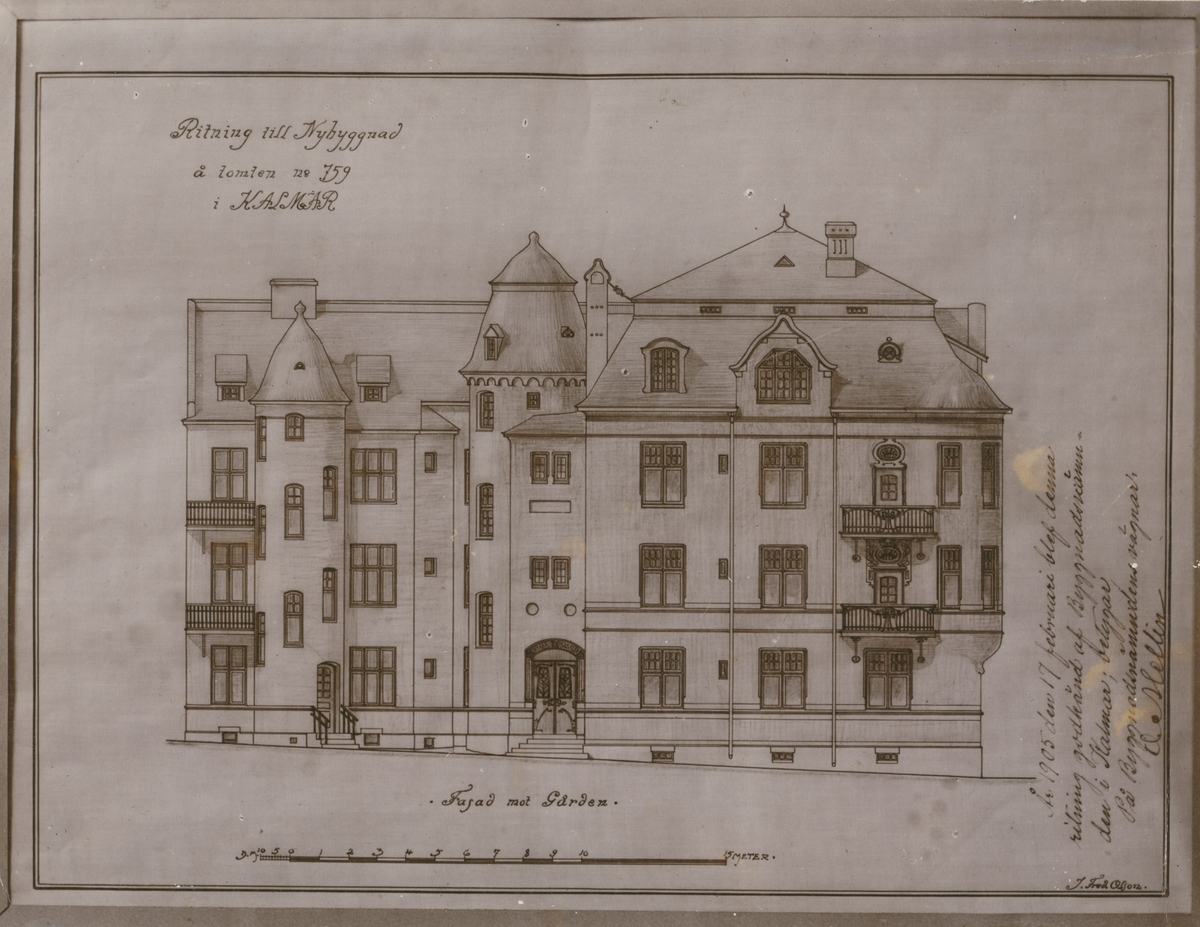 Ritning till Nybyggnad
å tomten nº 759
i KALMAR
· Fasad mot Gården ·
D.M. 10 5 0 1 2 3 4 5 6 7 8 9 10 15 METER.
J. Fred Olson.
År 1905 den 17 februari blef denna
ritning godkänd af Byggnadsnämn-
den i Kalmar, betygar
På Byggnadsnämndens vägnar: